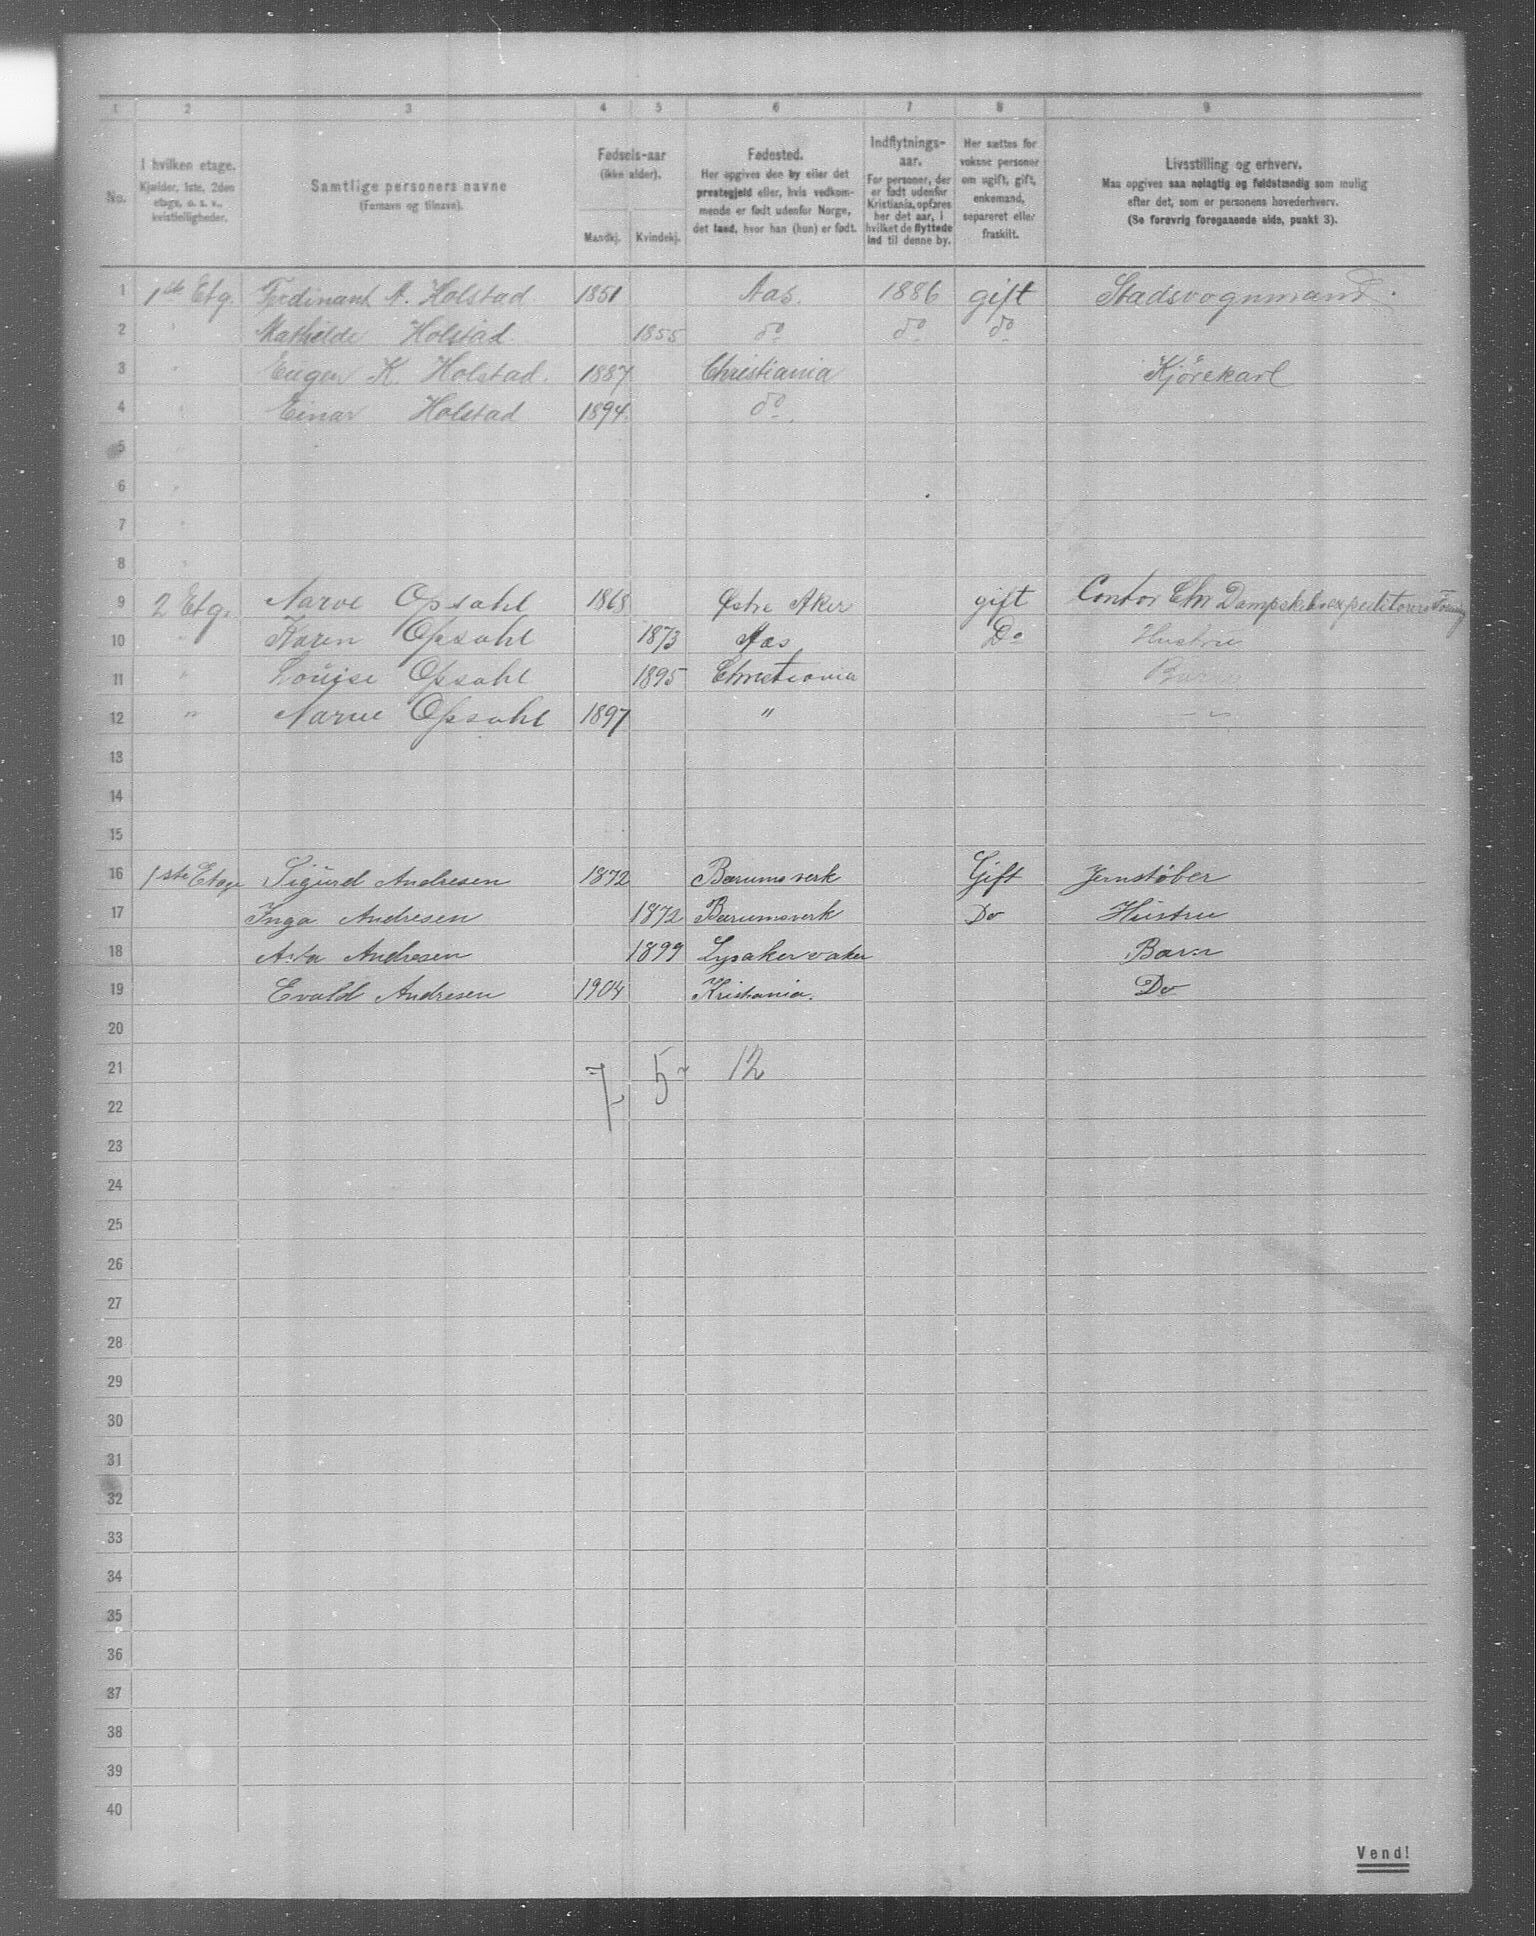 1 2 3 4 5 6 7 8 9
No.
I hvilken etage.
Kjælder, 1ste, 2den
etage, o. s. v.,
kvistleiligheder.
Samtlige personers navne
(Fornavn og tilnavn).
Fødsels-aar
(ikke alder).
Mandkj. Kvindekj.
Fødested.
Her opgives den by eller det
præstegjeld eller, hvis vedkom-
mende er født udenfor Norge,
det land, hvor han (hun) er født.
Indflytnings-
aar.
For personer, der
er født udenfor
Kristiania, opføres
her det aar, i
hvilket de flyttede
ind til denne by.
Her sættes for
voksne personer
om ugift, gift,
enkemand,
separeret eller
fraskilt.
Livsstilling og erhverv.
Maa opgives saa nøiagtig og fuldstændig som mulig
efter det, som er personens hovederhverv.
(Se forøvrig foregaaende side, punkt 3).
1 1ste Etg. Ferdinant A. Holstad 1851 Aas. 1886 gift Stadsvognmand.
2 " Mathilde Holstad 1855 do do do
3 " Eugen K. Holstad. 1887 Christiania Kjørekarl
4 " Einar Holstad 1894. do
5 "
6 "
7 "
8 "
9 2 Etg. Narve Opsahl 1868 Østre Aker gift Contor Chr Dampskibsexpeditører
10 " Karen Opsahl 1873 Aas Do Hustru
11 " Louise Opsahl 1895 Christiania Barn
12 " Narve Opsahl 1897 " "
13
14
15
16 1ste Etage Sigurd Andresen 1872 Bærums verk Gift Jernstøber
17 Inga Andresen 1872 Bærumsverk Do Hustru
18 Asta Andresen 1899 Lysaker vaker Barn
19 Evald Andresen 1904 Kristiania. Do
20
21 7 5 12
22
23
24
25
26
27
28
29
30
31
32
33
34
35
36
37
38
39
40
Vend!